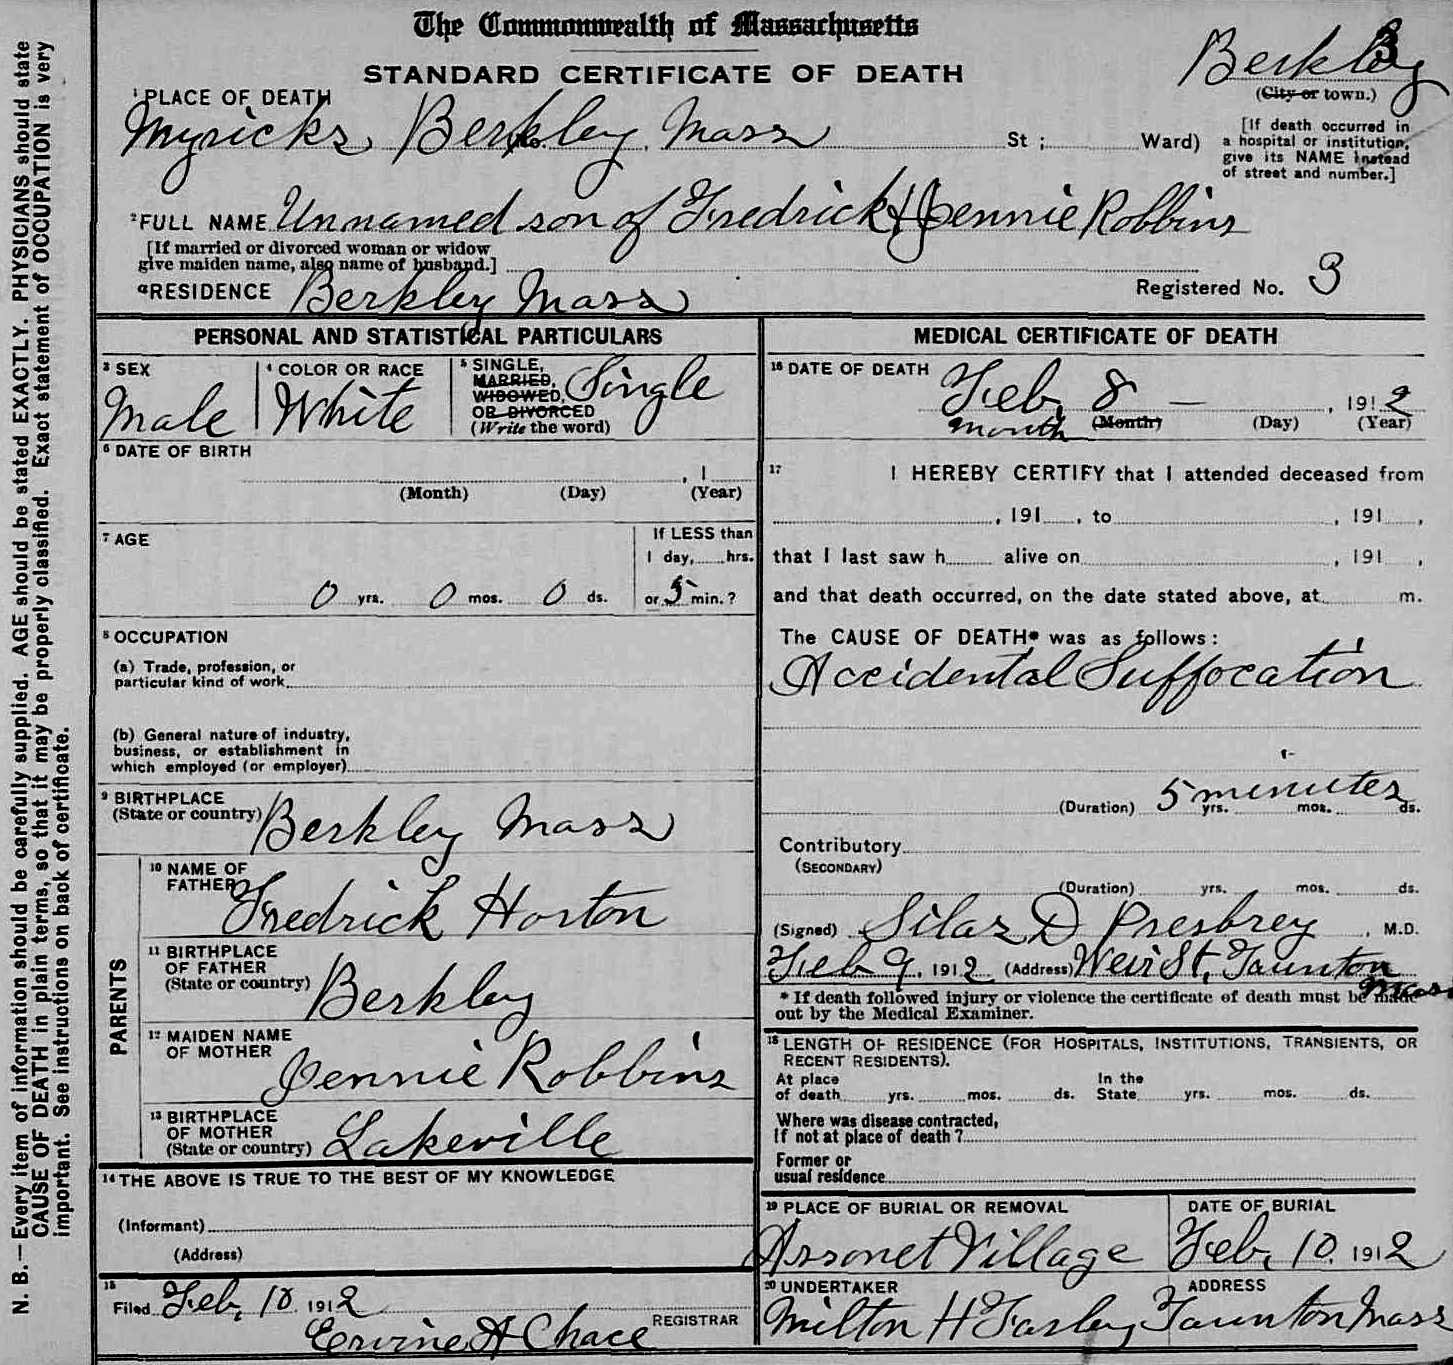 The Commonwealth of Massachusetts
STANDARD CERTIFICATE OF DEATH
Berkley
(City or town.)
1 PLACE OF DEATH
Myricks, Berkley, Mass St ; Ward)
[If death occurred in
a hospital or institution,
give its NAME instead
of street and number.]
2 FULL NAME Unnamed son of Fredrick & Jennie Robbins
[If married or divorced woman or widow
give maiden name, also name of husband.]
a RESIDENCE Berkley Mass
Registered No. 3
PERSONAL AND STATISTICAL PARTICULARS
3 SEX
Male
4 COLOR OR RACE
White
5 SINGLE,
MARRIED,
WIDOWED,
OR DIVORCED
(Write the word)
Single
6 DATE OF BIRTH
, 1
(Month) (Day) (Year)
7 AGE
0 yrs. 0 mos. 0 ds.
If LESS than
1 day, hrs.
or 5 min. ?
8 OCCUPATION
(a) Trade, profession, or
particular kind of work
(b) General nature of industry,
business, or establishment in
which employed (or employer)
9 BIRTHPLACE
(State or country) Berkley Mass
PARENTS
10 NAME OF
FATHER Fredrick Horton
11 BIRTHPLACE
OF FATHER
(State or country) Berkley
12 MAIDEN NAME
OF MOTHER Jennie Robbins
13 BIRTHPLACE
OF MOTHER
(State or country) Lakeville
14 THE ABOVE IS TRUE TO THE BEST OF MY KNOWLEDGE
(Informant)
(Address)
15
Filed Feb, 10 1912
Ervine A Chace REGISTRAR
MEDICAL CERTIFICATE OF DEATH
16 DATE OF DEATH
Feb, 8 — , 1912
month (Month) (Day) (Year)
17 I HEREBY CERTIFY that I attended deceased from
, 191 , to , 191 ,
that I last saw h alive on , 191 ,
and that death occurred, on the date stated above, at m.
The CAUSE OF DEATH* was as follows :
Accidental Suffocation
(Duration) 5 minutes yrs. mos. ds.
Contributory
(SECONDARY)
(Duration) yrs. mos. ds.
(Signed) Silas D Presbrey , M.D.
Feb 9, 1912 (Address) Weir St, Taunton
Mass
* If death followed injury or violence the certificate of death must be made
out by the Medical Examiner.
18 LENGTH OF RESIDENCE (FOR HOSPITALS, INSTITUTIONS, TRANSIENTS, OR
RECENT RESIDENTS).
At place
of death yrs. mos. ds.
In the
State yrs. mos. ds.
Where was disease contracted,
If not at place of death ?
Former or
usual residence
19 PLACE OF BURIAL OR REMOVAL
Assonet Village
DATE OF BURIAL
Feb, 10, 1912
20 UNDERTAKER
Milton H Farley
ADDRESS
Taunton Mass
N. B.—Every item of information should be carefully supplied. AGE should be stated EXACTLY. PHYSICIANS should state
CAUSE OF DEATH in plain terms, so that it may be properly classified. Exact statement of OCCUPATION is very
important. See instructions on back of certificate.